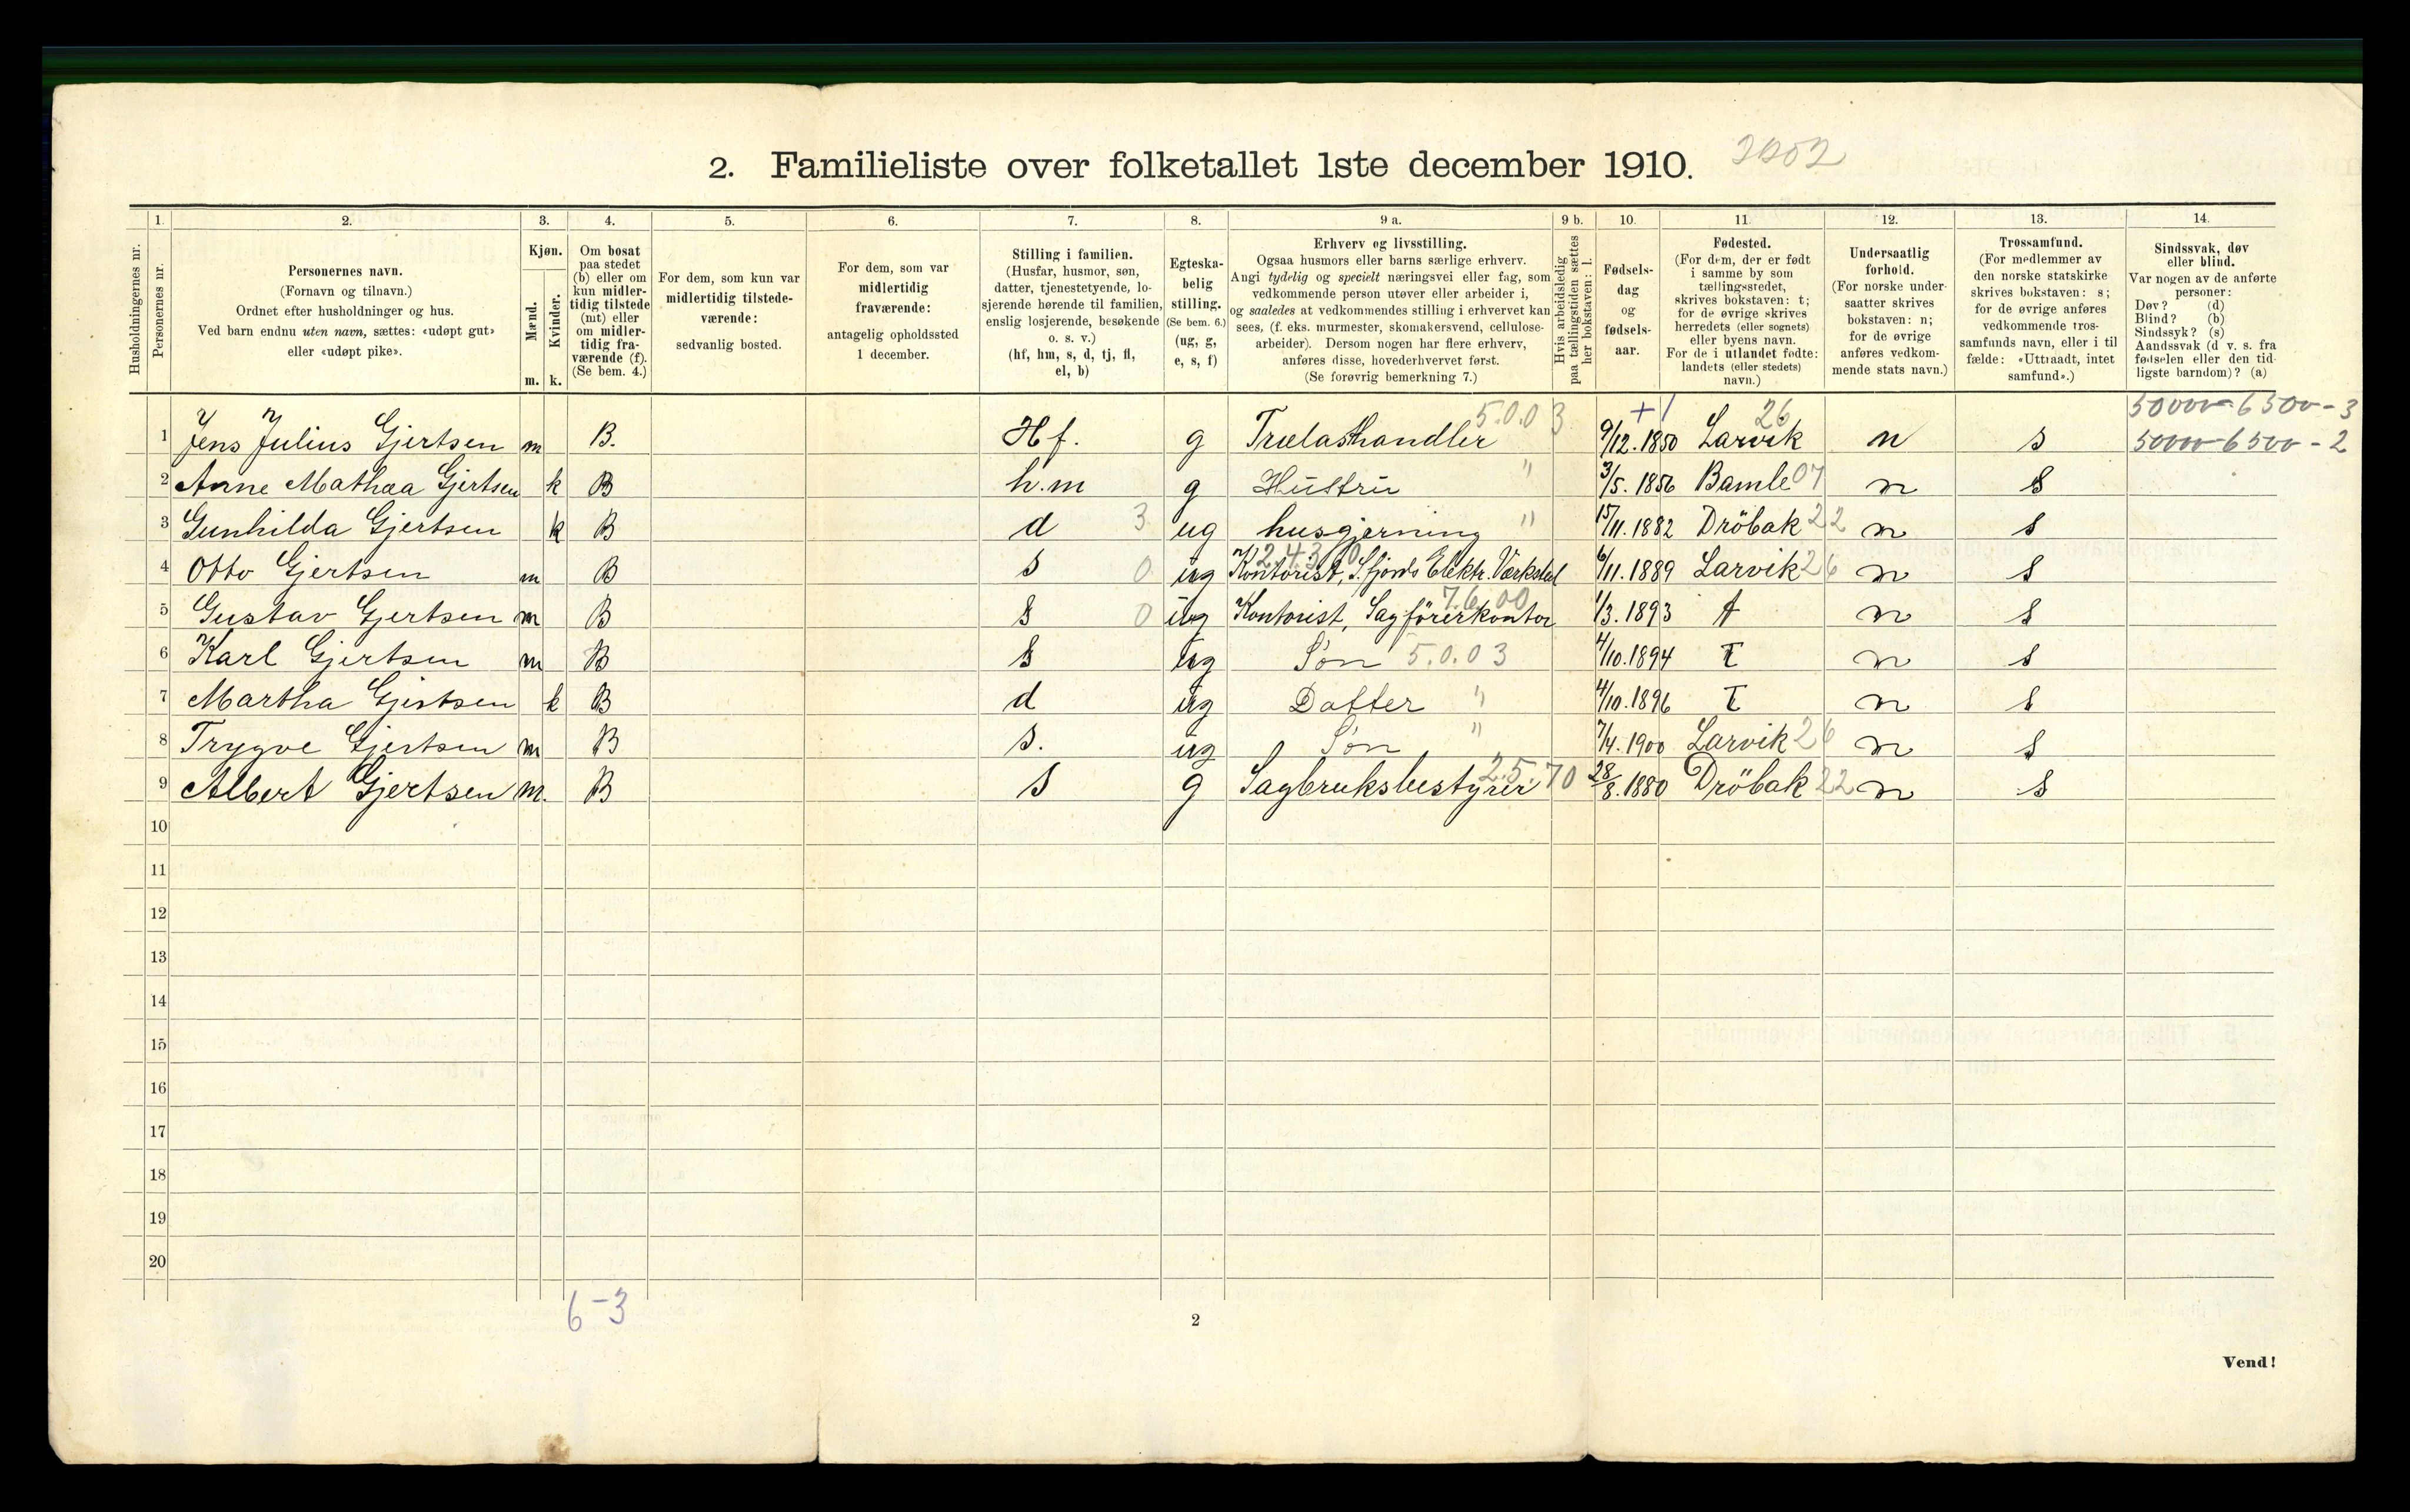 2. Familieliste over folketallet 1ste december 1910. 2202
1. 2. 3. 4. 5. 6. 7. 8. 9 a. 9 b. 10. 11. 12. 13. 14.
Husholdningernes nr.
Personernes nr.
Personernes navn.
(Fornavn og tilnavn.)
Ordnet efter husholdninger og hus.
Ved barn endnu uten navn, sættes: «udøpt gut»
eller «udøpt pike».
Kjøn.
Mænd.
m.
Kvinder.
k.
Om bosat
paa stedet
(b) eller om
kun midler-
tidig tilstede
(mt) eller
om midler-
tidig fra-
værende (f).
(Se bem. 4.)
For dem, som kun var
midlertidig tilstede-
værende:
sedvanlig bosted.
For dem, som var
midlertidig
fraværende:
antagelig opholdssted
1 december.
Stilling i familien.
(Husfar, husmor, søn,
datter, tjenestetyende, lo-
sjerende hørende til familien,
enslig losjerende, besøkende
o. s. v.)
(hf, hm, s, d, tj, fl,
el, b)
Egteska-
belig
stilling.
(Se bem. 6.)
(ug, g,
e, s, f)
Erhverv og livsstilling.
Ogsaa husmors eller barns særlige erhverv.
Angi tydelig og specielt næringsvei eller fag, som
vedkommende person utøver eller arbeider i,
og saaledes at vedkommendes stilling i erhvervet kan
sees, (f. eks. murmester, skomakersvend, cellulose-
arbeider). Dersom nogen har flere erhverv,
anføres disse, hovederhvervet først.
(Se forøvrig bemerkning 7.)
Hvis arbeidsledig
paa tællingstiden sættes
her bokstaven: l.
Fødsels-
dag
og
fødsels-
aar.
Fødested.
(For dem, der er født
i samme by som
tællingsstedet,
skrives bokstaven: t;
for de øvrige skrives
herredets (eller sognets)
eller byens navn.
For de i utlandet fødte:
landets (eller stedets)
navn.)
Undersaatlig
forhold.
(For norske under-
saatter skrives
bokstaven: n;
for de øvrige
anføres vedkom-
mende stats navn.)
Trossamfund.
(For medlemmer av
den norske statskirke
skrives bokstaven: s;
for de øvrige anføres
vedkommende tros-
samfunds navn, eller i til
fælde: «Uttraadt, intet
samfund».)
Sindssvak, døv
eller blind.
Var nogen av de anførte
personer:
Døv? (d)
Blind? (b)
Sindssyk? (s)
Aandssvak (d v. s. fra
fødselen eller den tid-
ligste barndom)? (a)
5.0.03 +1 26 50000-6500-3
1 Jens Julius Gjertsen m B. Hf. g Trælasthandler 9/12.1850 Larvik n s 50000-6500-2
2 Anne Mathæa Gjertsen k B h.m g Hustru " 3/5.1856 Bamle 07 n s
3 Gunhilda Gjertsen k B d 3 ug husgjerning " 15/11.1882 Dröbak 22 n s
4 Otto Gjertsen m B s 0 ug Kontorist, S.fjords Elektr. Værksted 6/11.1889 Larvik 26 n s
5 Gustav Gjertsen m B s 0 ug Kontorist, Sagförerkontor 7.6.00 1/3.1893 t n s
6 Karl Gjertsen m B s ug Søn 5.0.03 4/10.1894 T n s
7 Martha Gjertsen k B d ug Datter " 4/10.1896 T n s
8 Trygve Gjertsen m B s. ug Søn " 7/4.1900 Larvik 26 n s
9 Albert Gjertsen m. B s g Sagbruksbestyrer 2.5.70 28/8.1880 Dröbak 22 n s
10
11
12
13
14
15
16
17
18
19
20
6-3
2
Vend!